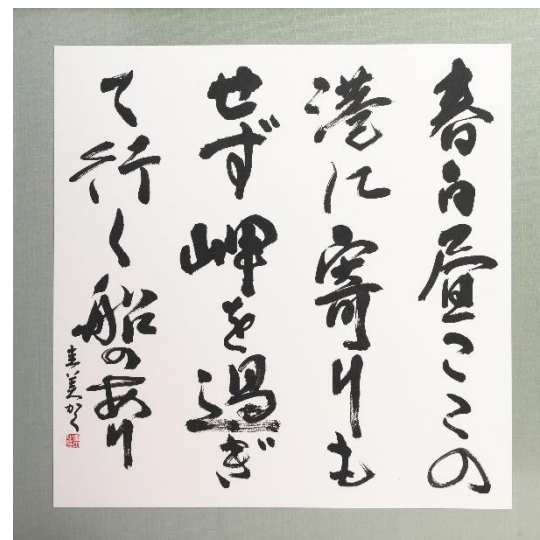 春白昼ここの
港に寄りも
せず岬を過ぎ
て行く船のあり
圭美かく